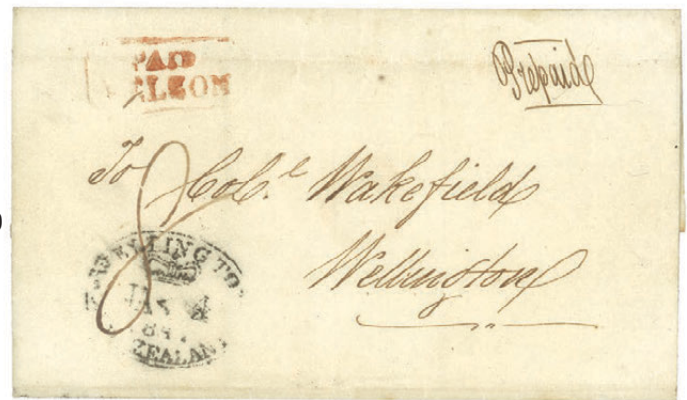 PAID
NELSON
Prepaid
To Col.l Wakefield
8
Wellington
WELLINGTON
JA
ZEALAN